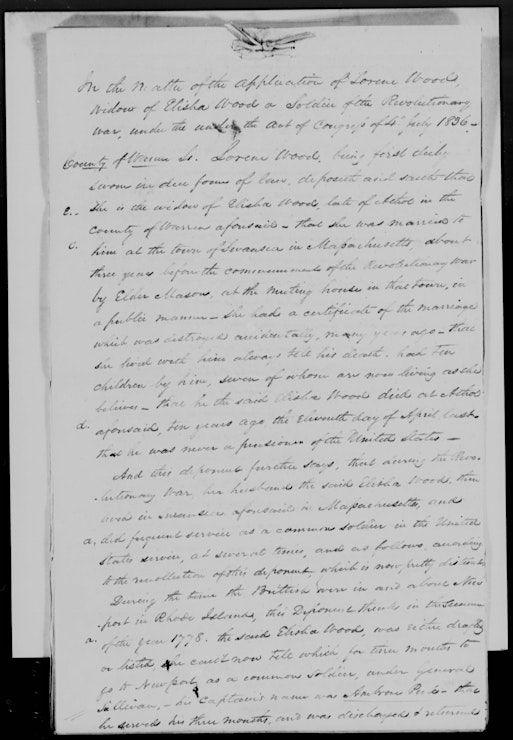 In the Matter of the Application of Lorene Wood,
widow of Elisha Wood a Soldier of the Revolutionary
war, under the under the Act of Congress of 4th July 1836.-
County of Warren Ss. Lorene Wood, being first duly
Sworn in due form of law, deposeth and saith that
e.. She is the widow of Elisha Wood, late of Athol in the
County of Warren aforesaid - that she was married to
c. him at the town of Swansea in Massachusetts, about
three years before the commencement of the Revolutionary War
by Elder Mason, at the meeting house in that town, in
a public manner - She had a certificate of the marriage
which was destroyed accidentally, many years ago - that
she lived with him always till his death. had ten
children by him, seven of whom are now living as she
believes - that he the said Elisha Wood died at Athol
d. aforesaid, ten years ago the Eleventh day of April last-
that he was never a pensioner of the United States -
And this deponent further says, that during the Revo-
-lutionary War, her husband the said Elisha Wood, then
lived in Swansea aforesaid in Massachusetts, and
a, did frequent service as a common soldier in the United
States service, at several times, and as follows, according
to the recollection of this deponent, which is now pretty distinct
During the time the Brittish were in and about New
port in Rhode Island, this Deponent thinks in the Summer
a. of the year 1778. the said Elisha Wood, was either drafted
or listed, she can't now tell which for three months to
go to Newport, as a common Soldier, under General
Sullivan, - his Captain's name was - that
he served his three months, and was discharged & returned